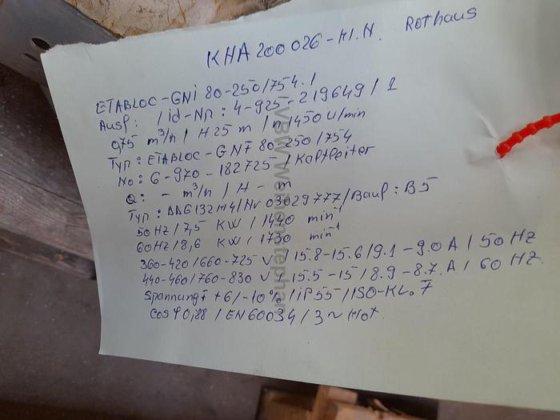 KHA 200 026 - H.N. Rothaus
ETABLOC-GNi 80-250/754.1
Ausf: / id-Np: 4-925-219649/1
0,75 m³/h / H 25 m / n 1450 U/min
Typ: ETABLOC-GNF 80-250/754
No: 6-970-182725 / Kaltleiter
Q: - m³/h / H - m
Typ: AAG132M4/Nr 03029777/Bauf: B5
50 Hz / 7,5 KW / 1440 min⁻¹
60 Hz / 8,6 KW / 1730 min⁻¹
360-420/660-725 V / 15.8-15.6/9.1-9.0 A / 50 Hz
440-460/760-830 V / 15.5-15/8.9-8.7 A / 60 Hz
Spannungt +6/-10% / iP 55 / ISO-KL. F
cos φ 0,88 / EN 60034 / 3 ~ Mot